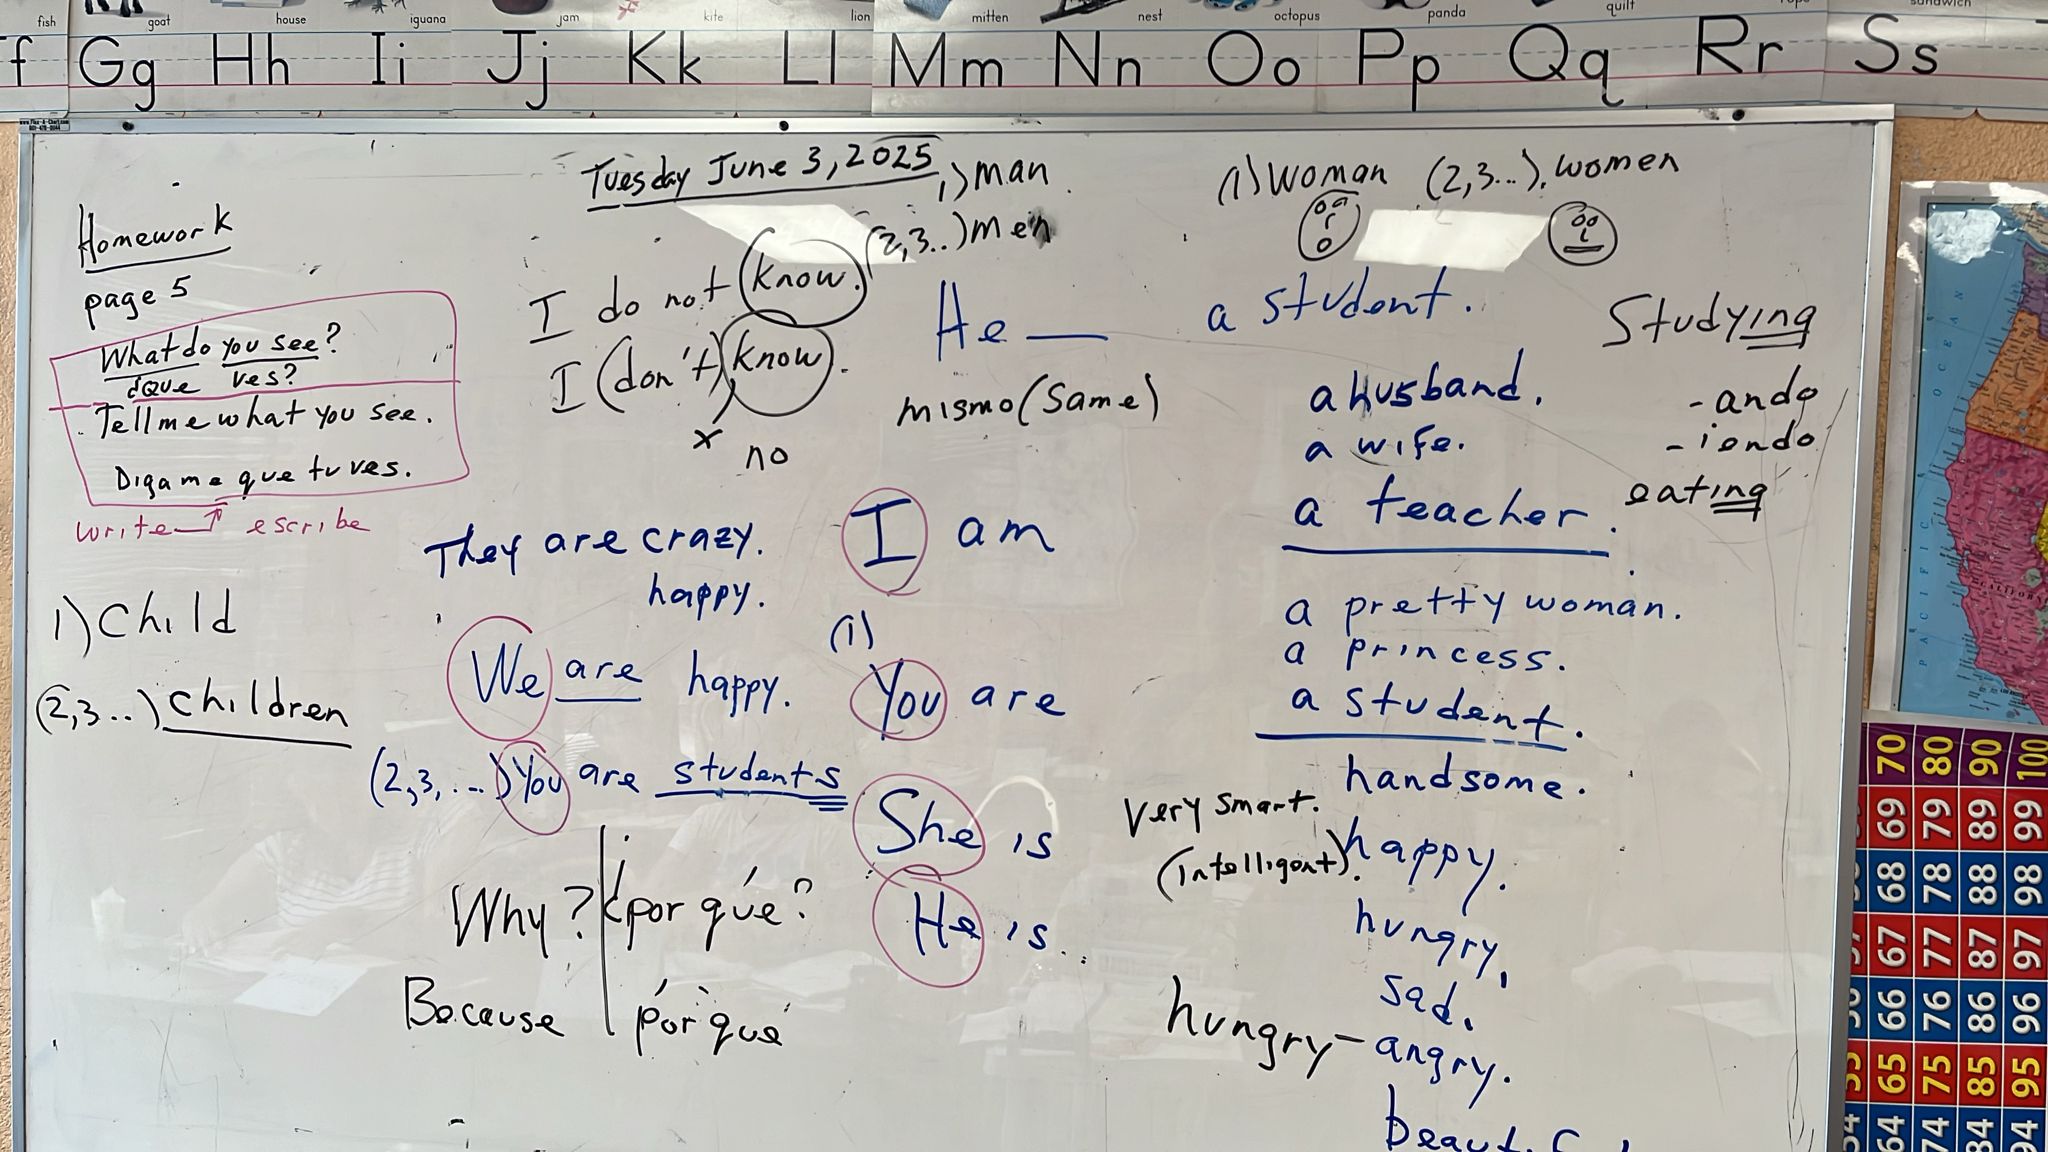 fish goat house iguana jam kite lion mitten nest octopus panda quilt
f Gg Hh Ii Jj Kk Ll Mm Nn Oo Pp Qq Rr Ss
Tuesday June 3, 2025
1) man
(2,3..) men
(1) woman (2,3...). women
Homework
page 5
What do you see?
¿Que ves?
Tell me what you see.
Digame que tu ves.
write escribe
1) Child
(2,3..) children
I do not know.
I (don't) know.
x no
He ___ a student.
mismo (same)
a husband.
a wife.
a teacher.
a pretty woman.
a princess.
a student.
handsome.
happy.
hungry.
sad.
angry.
Studying
-ando
-iendo
eating
They are crazy.
happy.
We are happy.
(2,3,...) You are students
I am
(1)
You are
She is
He is..
Very smart.
(intelligent).
hungry-
Why? ¿por qué?
Because porque
PACIFIC OCEAN
CALIFORNIA
70 80 90 100
69 79 89 99
68 78 88 98
67 77 87 97
66 76 86 96
55 65 75 85 95
54 64 74 84 94